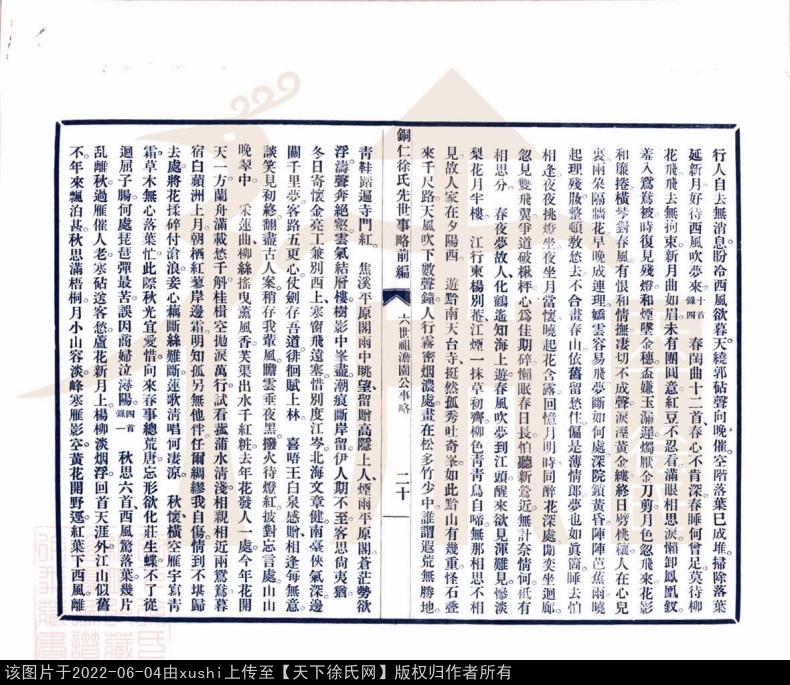 行人自去無消息盼冷西風欲暮天繞郭砧聲向晚催空階落葉已成堆掃除落葉
延新月好待西風吹夢來十首錄四　春閨曲十二首春心不肯深春睡何曾足莫待柳
花飛飛去無拘束新月曲如眉未有團圓意紅豆不忍看滿眼相思淚懶卸鳳凰釵
羞入鴛鴦被時復見殘燈和煙墜金穗盃嫌玉漏遲燭厭金刀剪月色忽飛來花影
和簾捲橫琴對春風有恨和情撫凄切不成聲淚溼黃金縷終日劈桃穰人在心兒
裏兩朵隔牆花早晚成連理嬌雲容易飛夢斷如何處深院鎖黃昏陣陣芭蕉雨曉
起理殘妝整頓教愁去不合畫春山依舊留愁住偏是薄情郎夢也如眞箇睡去怕
相逢夜夜挑燈坐夜坐月當懷曉起花含露回憶月明時同醉花深處閒奕坐迴廊
忽見雙飛翼爭道破楸枰心爲佳期碎懶眠春日長怕聽新鶯近無計奈情何祇有
相思分　春夜夢故人化鶴遙知海上遊春風吹夢到江頭醒來欲見渾難見慘淡
梨花月半樓　江行東楊別菴江煙一抹草初齊柳色青青鳥自啼無那相思不相
見故人家在夕陽西　遊黔南天台寺挺然孤秀吐奇峯如此黔山有幾重怪石疊
來千尺路天風吹下數聲鐘人行霧密烟濃處畫在松多竹少中誰謂遐荒無勝地
銅仁徐氏先世事略前編　六世祖澹園公事略　二十
青鞋踏遍寺門紅　焦溪平原閣雨中眺望留贈高隱上人煙雨平原閣蒼茫勢欲
浮濤聲奔絕壑雲氣結層樓樹影中峯盡潮痕斷岸留伊人期不至客思尙夷猶
冬日寄懷金亮工兼別西上寒窗飛遠寒惜別度江岑北海文章健南臺俠氣深邊
關千里夢客路五更心仗劍存吾道徘徊賦上林　喜晤王白泉感贈相逢每無意
談笑見初終翻盡古人案稍存我輩風瞻雲垂夜黑撥火待燈紅披對忘言處山山
晚翠中　采蓮曲柳絲搖曳薰風香芙渠出水千紅粧去年花發人一處今年花開
天一方蘭舟滿載愁千斛桂楫空拋淚萬行試看菰蒲水清淺相親相近兩鴛鴦暮
宿白蘋洲上月朝栖紅蓼岸邊霜明知孤另無他伴任爾綢繆我自傷情到不堪歸
去處將花揉碎付滄浪妾心藕斷絲難斷蓮歌清唱何淒涼　秋懷橫空雁字寫青
霜草木無心落葉忙此際秋光宜愛惜向來春事總荒唐忘形欲化莊生蝶不了從
迴屈子腸何處琵琶彈最苦誤因商婦泣潯陽四首錄一　秋思六首西風驚落葉幾片
亂離秋過雁催人老寒砧送客愁蘆花新月上楊柳淡烟浮回首天涯外江山似舊
不年來飄泊甚秋思滿梧桐月小山容淡峰寒雁影空黃花開野逕紅葉下西風離
该图片于2022-06-04由xushi上传至【天下徐氏网】版权归作者所有